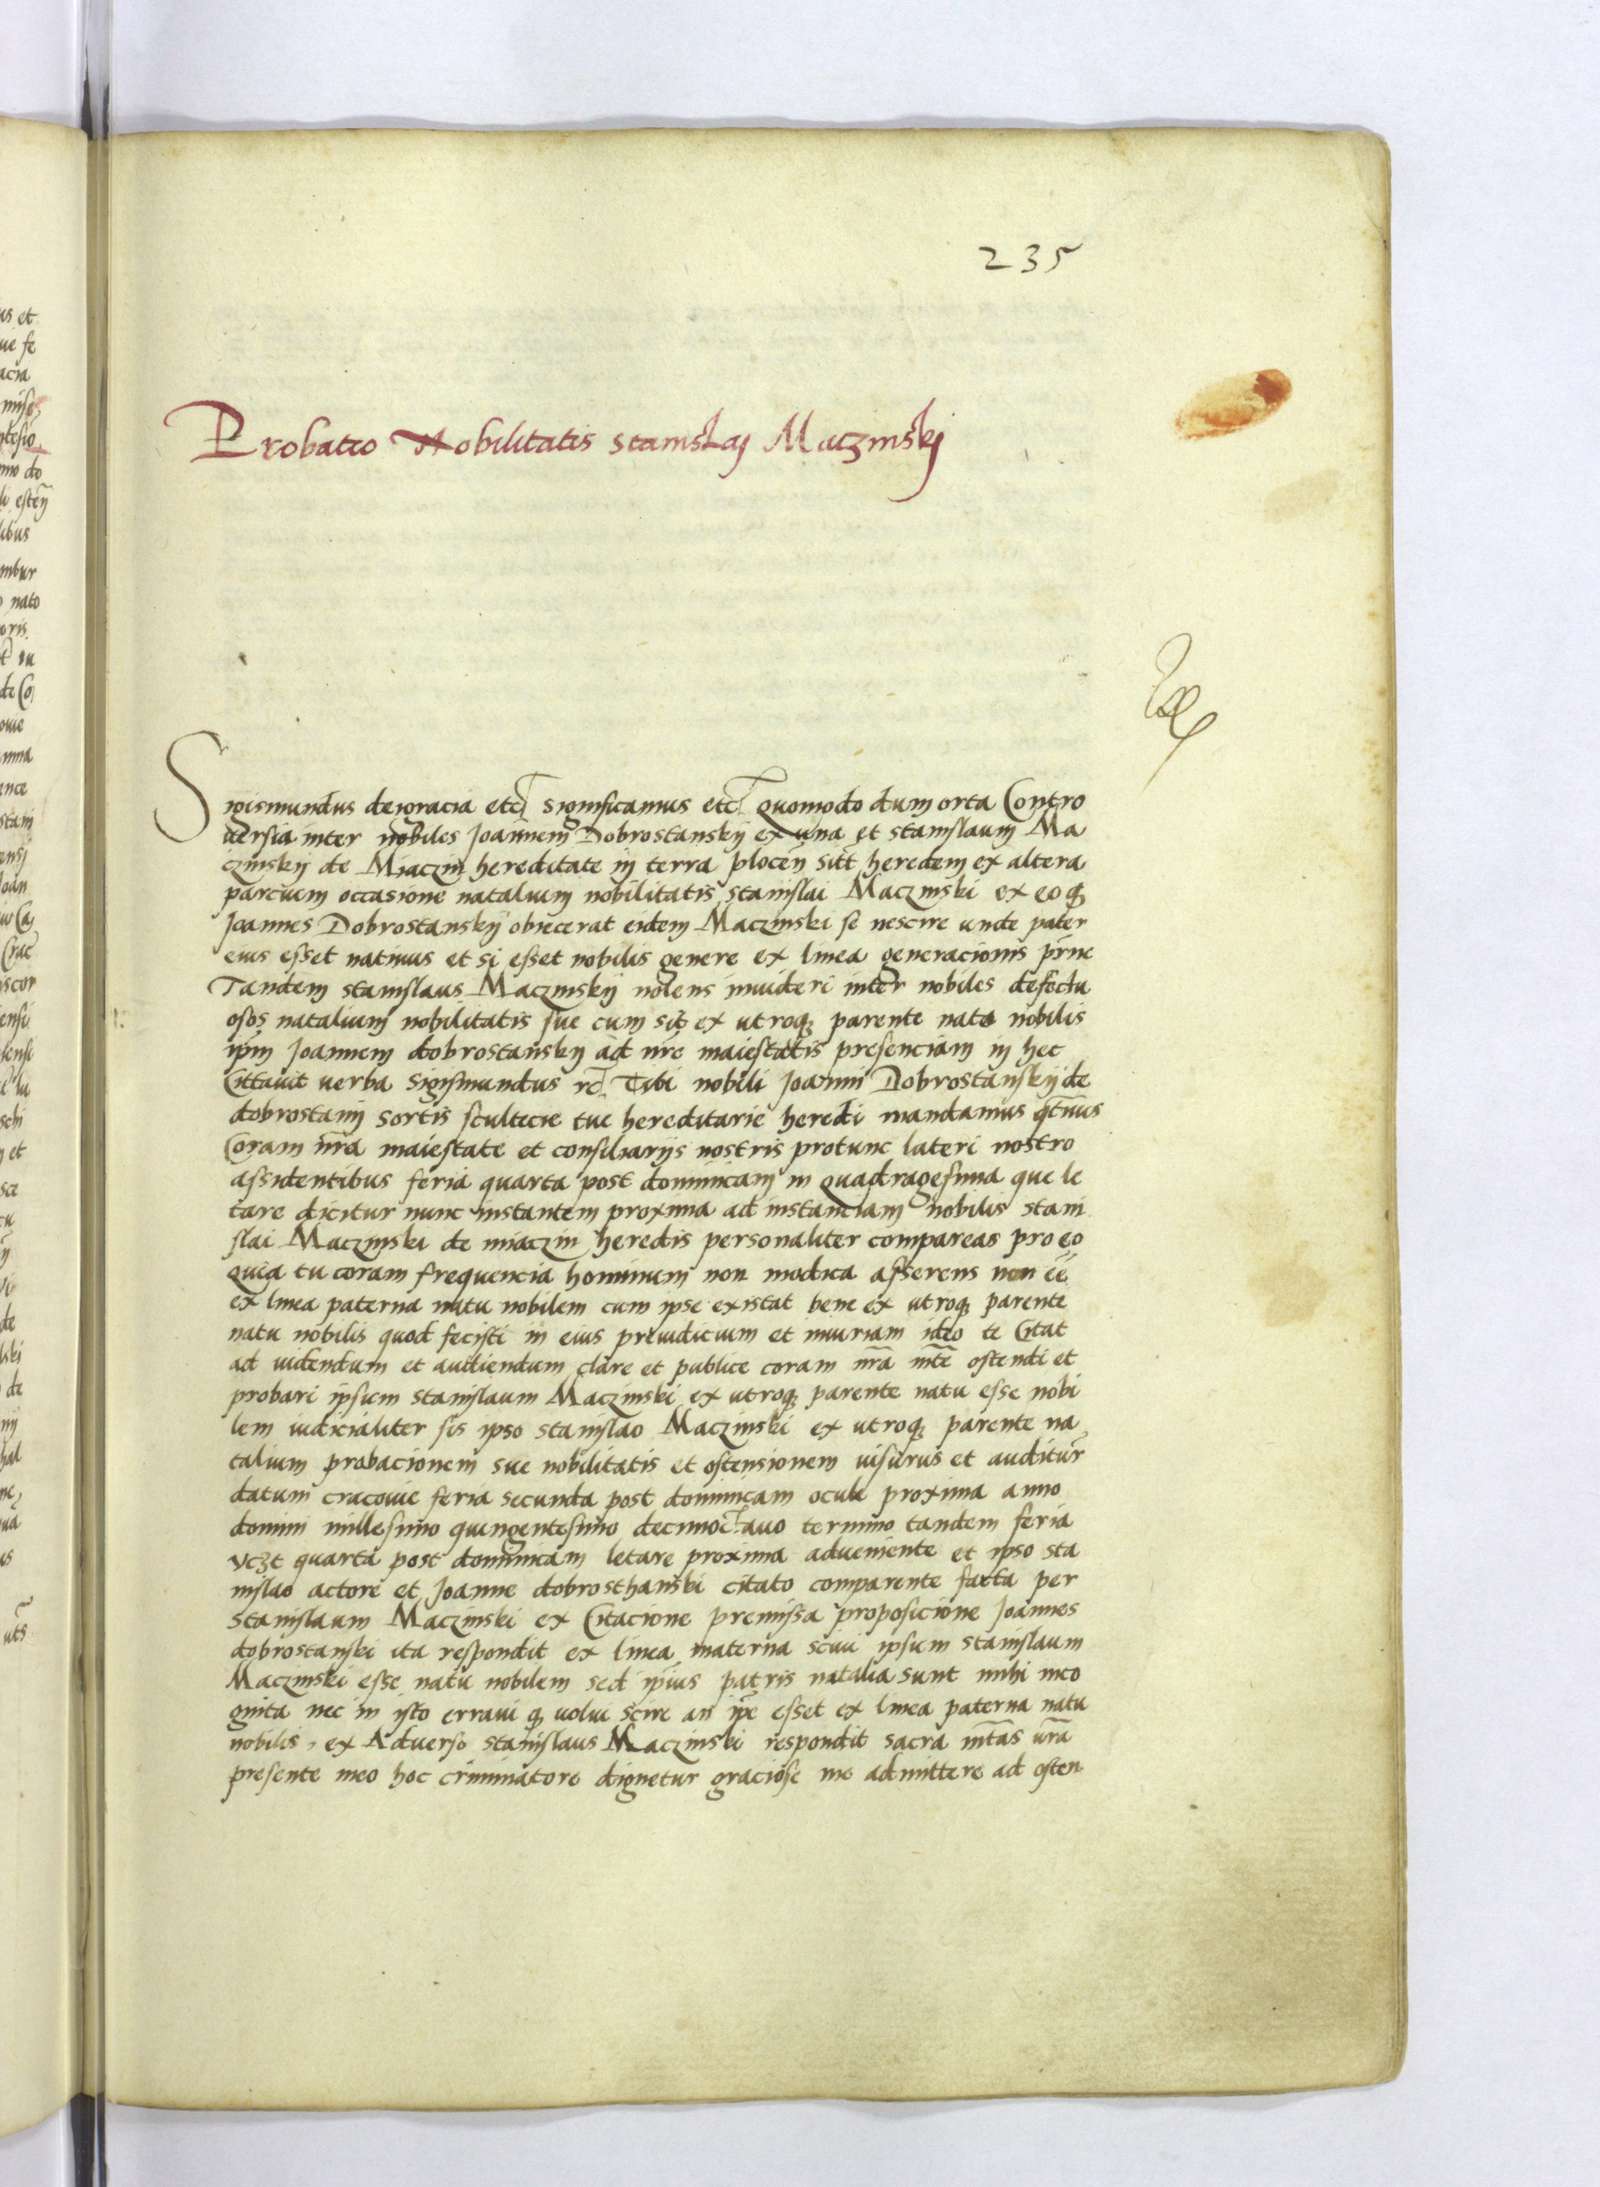 235
Probatio Nobilitatis Stanislaj Maczinskij
Sigismundus dei gracia etc significamus etc Quomodo dum orta Contro
uersia inter nobiles Joannem Dobrostanskij ex una et stanislaum Ma
czinskij de Miaczin hereditate in terra plocen̄ sitt heredem ex altera
parcium occasione natalium nobilitatis stanislai Maczinski ex eo q
Joannes Dobrostanskij obiecerat eidem Maczinski se nescire unde pater
eius esset natiuus et si esset nobilis genere ex linea generacionis pr̄ne
Tandem stanislaus Maczinskij nolens inuideri inter nobiles defectu
osos natalium nobilitatis sue cum sit ex utroq parente nato nobilis
ip̄m Joannem dobrostanskij ad nr̄e maiestatis presenciam in hec
Cittauit verba Sigismundus rc̄ Tibi nobili Joanni Dobrostanskij de
dobrostanij sortis scultecie tue hereditarie heredi mandamus qt̄nus
Coram nr̄a maiestate et consiliarijs nostris protunc lateri nostro
assidentibus feria quarta post dominicam in quadragesima que le
tare dicitur nunc instantem proxima ad instanciam nobilis stani
slai Maczinski de miaczin heredis personaliter compareas pro eo
quia tu coram frequencia hominum non modica asserens non eē
ex linea paterna natu nobilem cum ipse existat bene ex utroq parente
natu nobilis quod fecisti in eius preiudicium et iniuriam ideo te Citat
ad uidendum et audiendum clare et publice coram nr̄a mt̄e ostendi et
probari ipsum stanislaum Maczinski ex utroq parente natu esse nobi
lem iudicialiter sis ipso stanislao Maczinski ex utroq parente na
talium probacionem sue nobilitatis et ostensionem uisurus et auditur̄
datum cracouie feria secunda post dominicam oculi proxima anno
domini millesimo quingentesimo decimoctauo termino tandem feria
vcꝫt quarta post dominicam letare proxima adueniente et ipso sta
nislao actore et Joanne dobrosthanski citato comparente facta per
Stanislaum Maczinski ex Citacione premissa proposicione Joannes
dobrostanski ita respondit ex linea materna sciui ipsum stanislaum
Maczinski esse natu nobilem sed ip̄ius patris natalia sunt mihi inco
gnita nec in isto erraui q uolui scire an ip̄e esset ex linea paterna natu
nobilis, ex Aduerso stanislaus Maczinski respondit sacra mt̄as vr̄a
presente meo hoc criminatore dignetur graciose me admittere ad osten